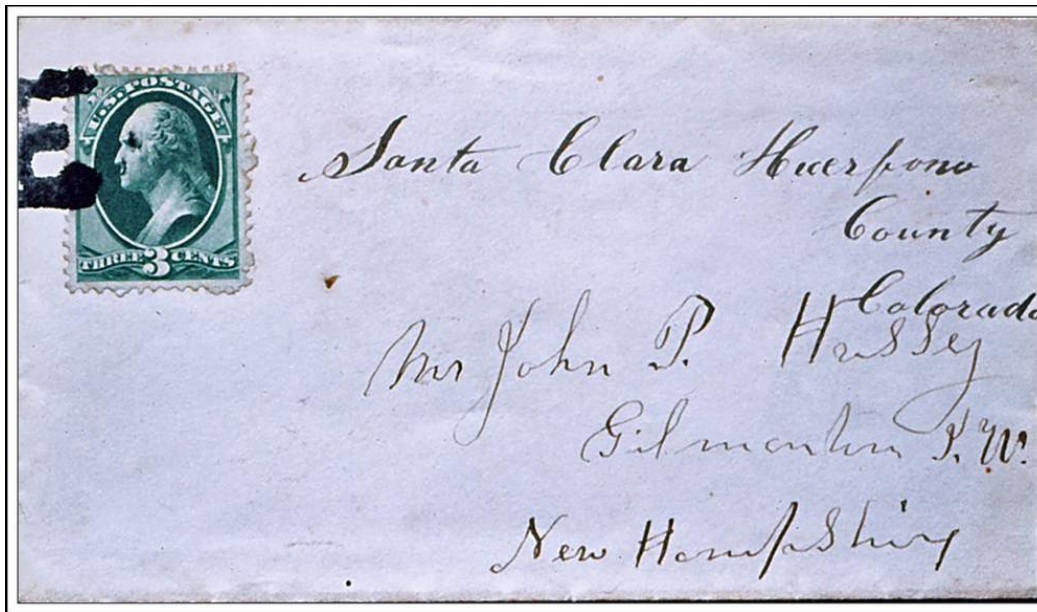 U.S. POSTAGE
THREE 3 CENTS
Santa Clara Huerfono
County
Colorado
Mr John P. Hussey
Gilmanton I. W.
New Hampshire